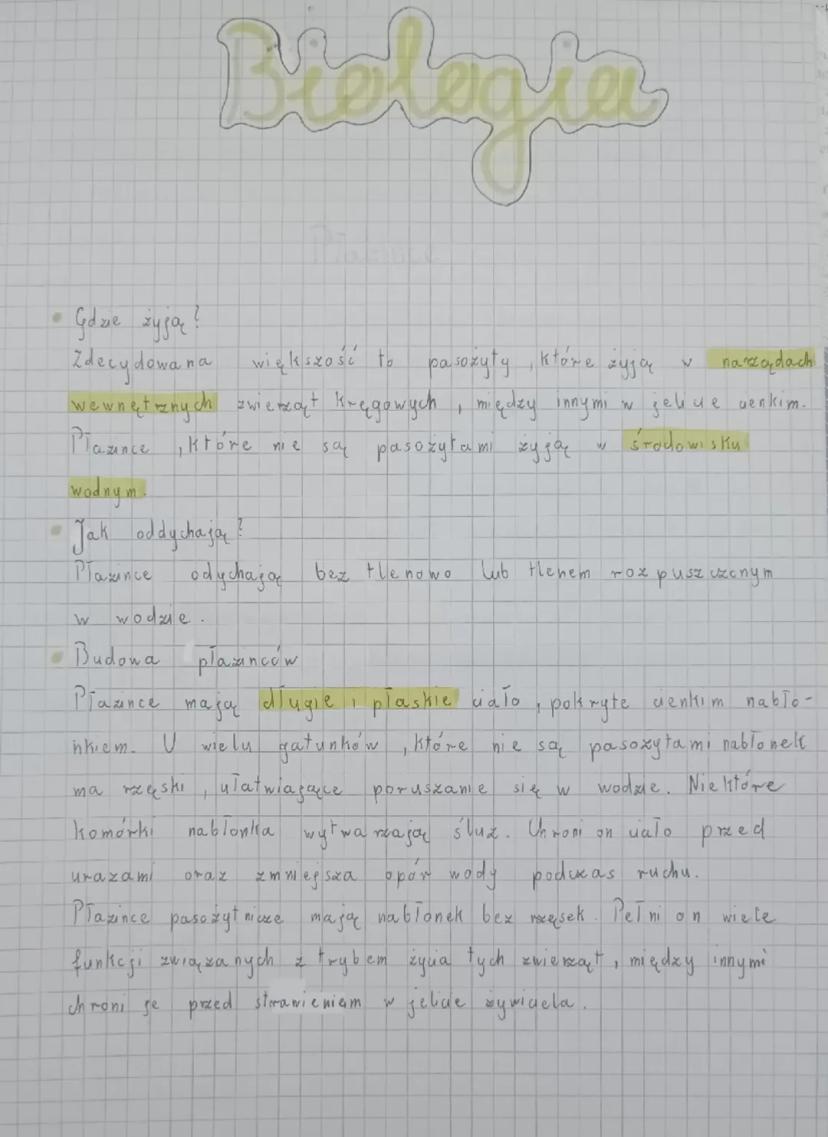 Biologia
Płazińce
• Gdzie żyją?
Zdecydowana większość to pasożyty, które żyją w narządach
wewnętrznych zwierząt kręgowych, między innymi w jelicie cienkim.
Płazińce, które nie są pasożytami żyją w środowisku
wodnym.
• Jak oddychają?
Płazińce odychają bez tlenowo lub tlenem rozpuszczonym
w wodzie.
• Budowa płazińców
Płazińce mają długie i płaskie ciało, pokryte cienkim nabło-
nkiem. U wielu gatunków, które nie są pasożytami nabłonek
ma rzęski, ułatwiające poruszanie się w wodzie. Niektóre
komórki nabłonka wytwarzają śluz. Chroni on ciało przed
urazami oraz zmniejsza opór wody podczas ruchu.
Płazińce pasożytnicze mają nabłonek bez rzęsek. Pełni on wiele
funkcji związanych z trybem życia tych zwierząt, między innymi
chroni je przed strawieniem w jelicie żywiciela.